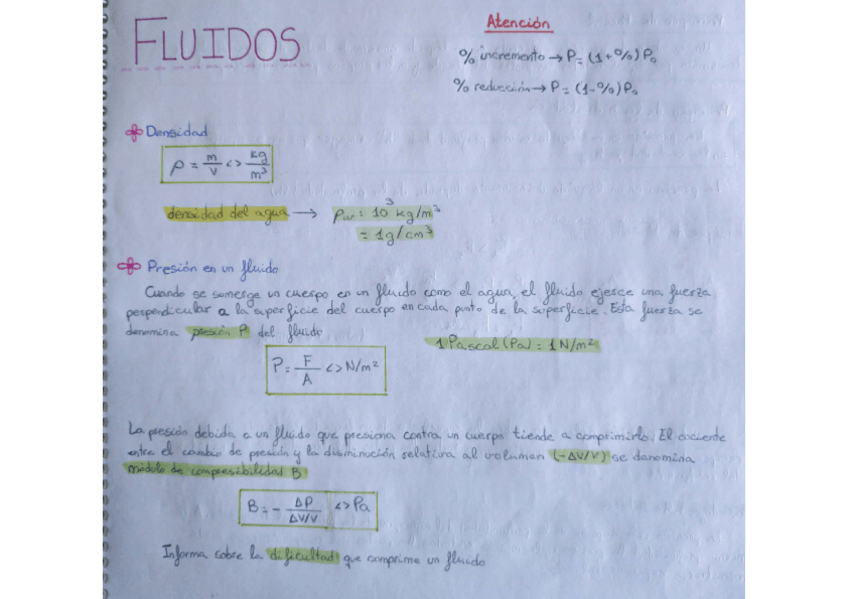 FLUIDOS
Atención
% incremento → P = (1+%) P₀
% reducción → P = (1-%) P₀
Densidad
ρ = m/V <> kg/m³
densidad del agua → ρw = 10³ kg/m³
= 1g/cm³
Presión en un fluido
Cuando se sumerge un cuerpo en un fluido como el agua, el fluido ejerce una fuerza
perpendicular a la superficie del cuerpo en cada punto de la superficie. Esta fuerza se
denomina presión P del fluido
P = F/A <> N/m²
1 Pascal (Pa) = 1 N/m²
La presión debida a un fluido que presiona contra un cuerpo tiende a comprimirlo. El cociente
entre el cambio de presión y la disminución relativa al volumen (-ΔV/V) se denomina
módulo de compresibilidad B
B = - ΔP/ΔV/V <> Pa
Informa sobre la dificultad que comprime un fluido